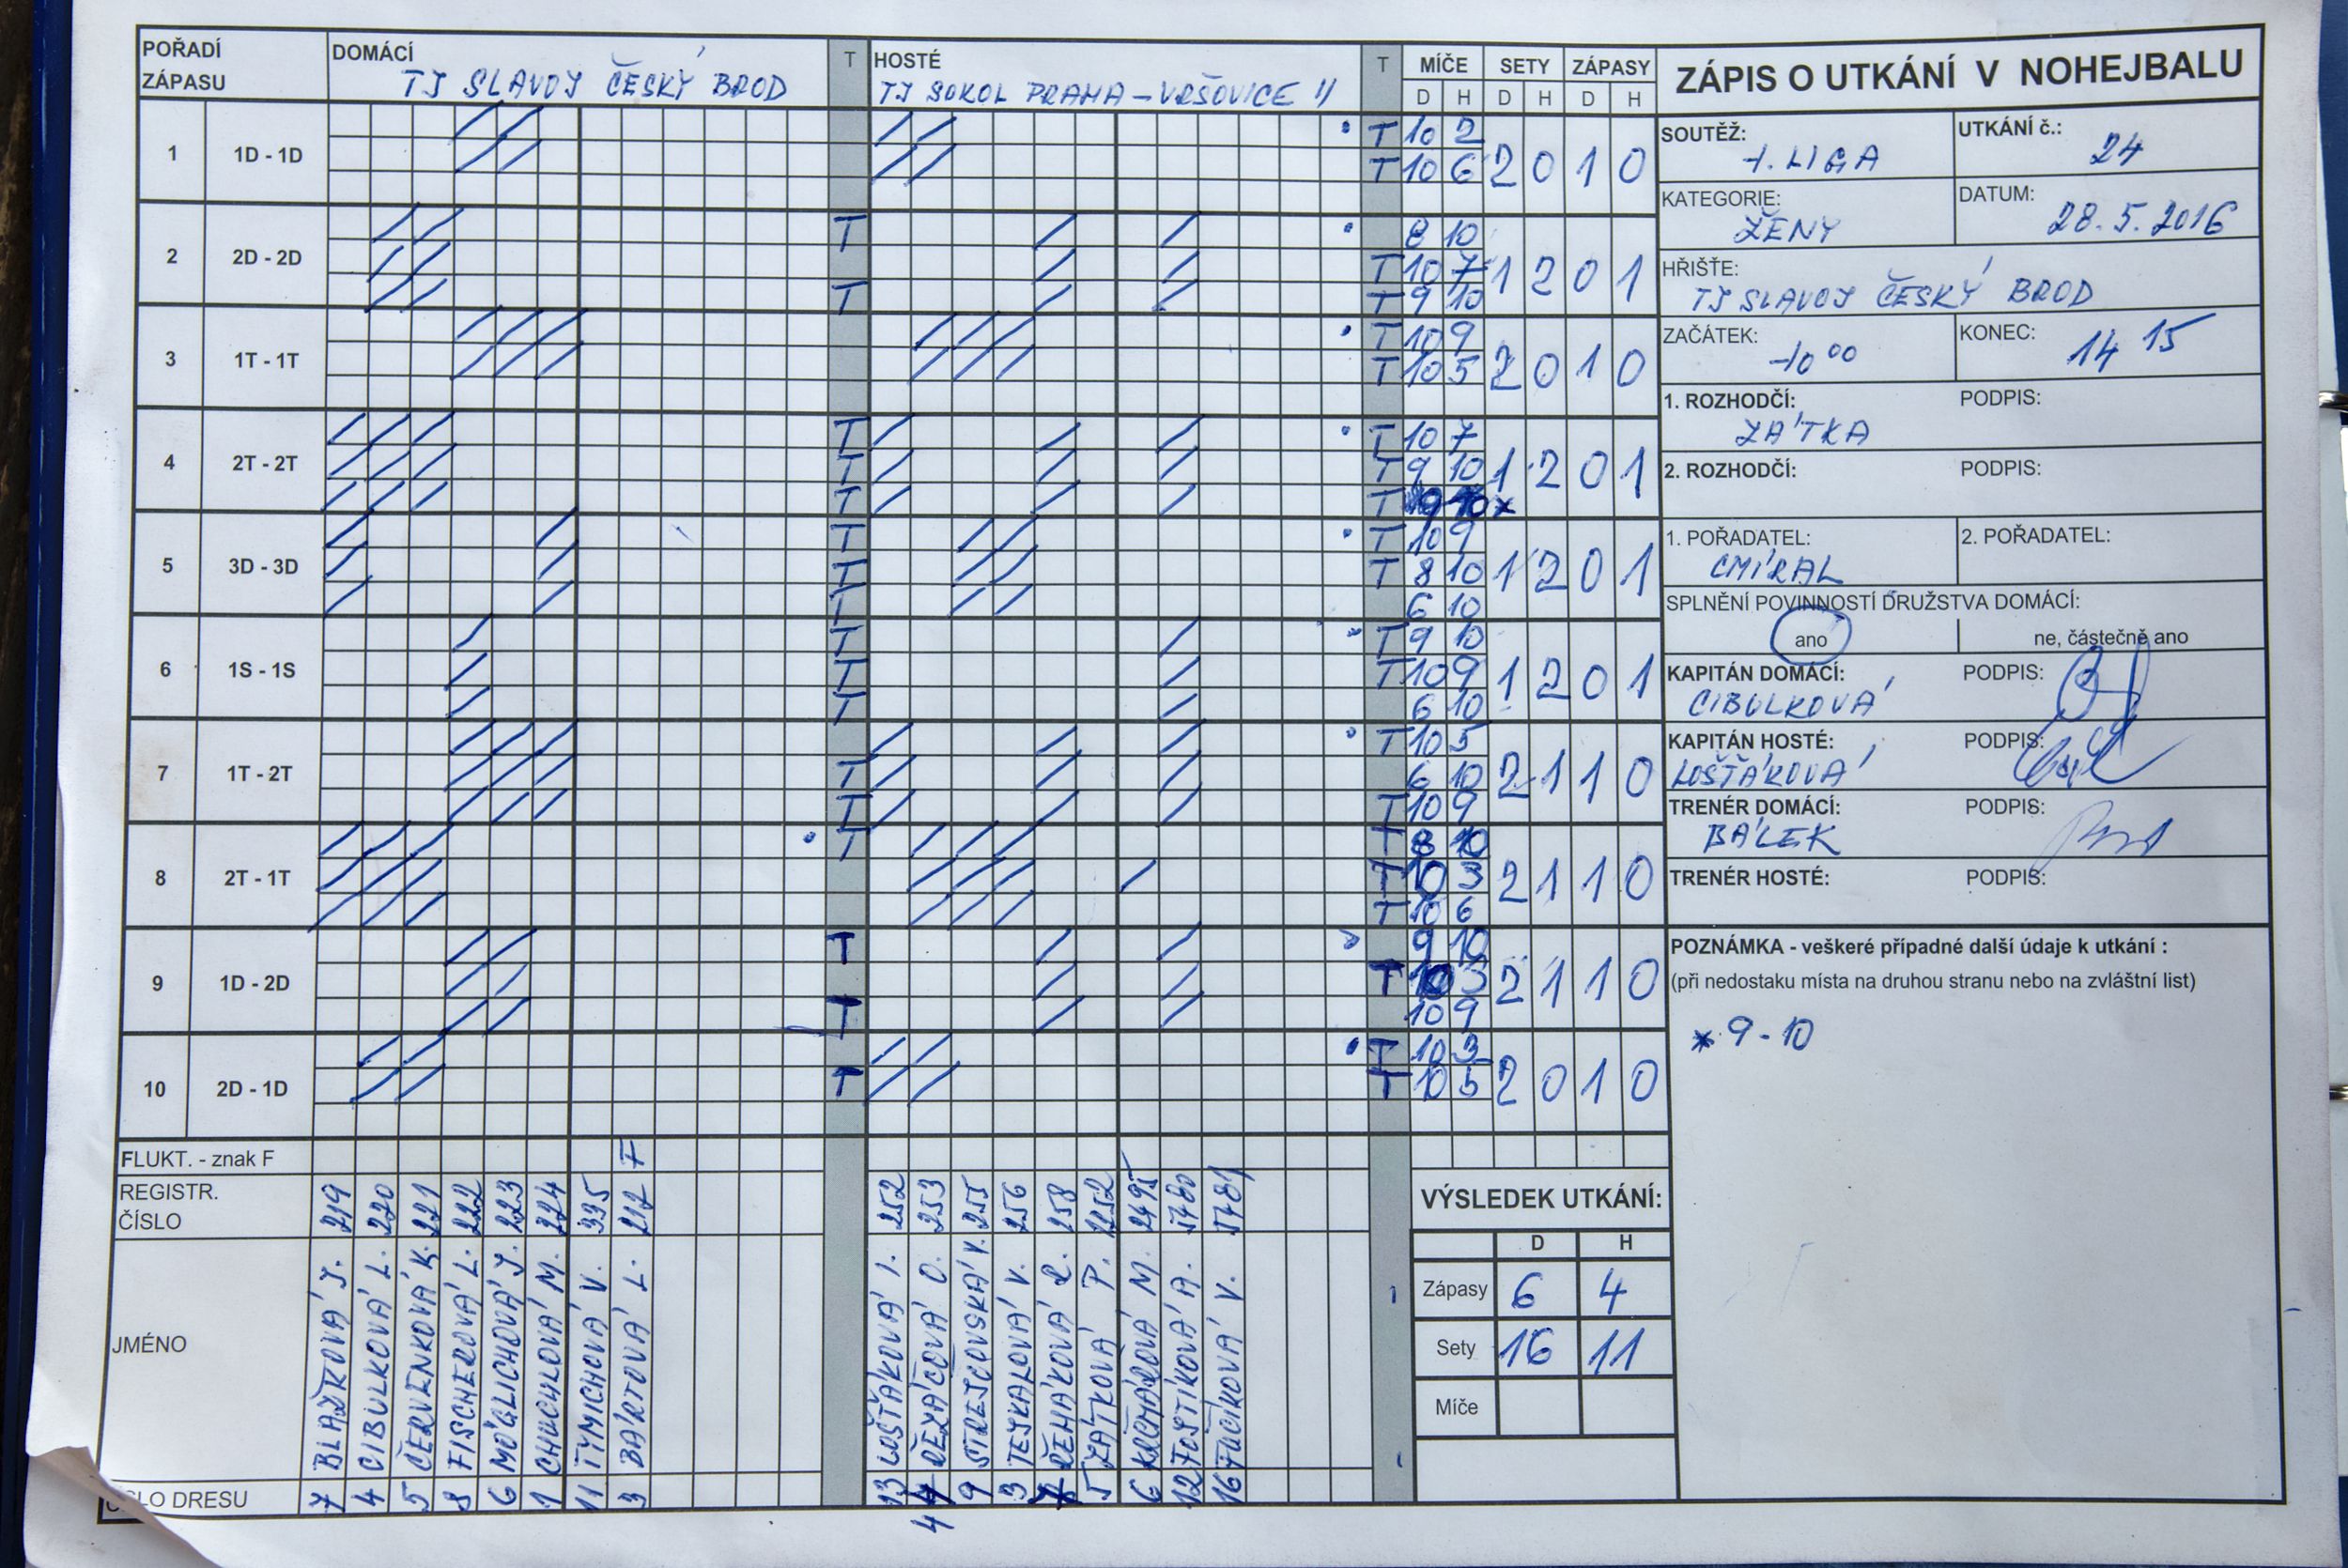 POŘADÍ ZÁPASU
DOMÁCÍ
TJ SLAVOJ ČESKÝ BROD
T
HOSTÉ
TJ SOKOL PRAHA-VRŠOVICE II
T
MÍČE SETY ZÁPASY
D H D H D H
1 1D - 1D T 10 2 T 10 6 2 0 1 0
2 2D - 2D T T 8 10 T 10 7 T 9 10 1 2 0 1
3 1T - 1T T 10 9 T 10 5 2 0 1 0
4 2T - 2T T T T T 10 7 T 9 10 T x 1 2 0 1
5 3D - 3D T T T T 10 9 T 8 10 6 10 1 2 0 1
6 1S - 1S T T T T 9 10 T 10 9 6 10 1 2 0 1
7 1T - 2T T T T 10 5 6 10 T 10 9 2 1 1 0
8 2T - 1T T T 8 10 T 10 3 T 10 6 2 1 1 0
9 1D - 2D T T 9 10 T 10 3 10 9 2 1 1 0
10 2D - 1D T T 10 3 T 10 5 2 0 1 0
FLUKT. - znak F
F
REGISTR. ČÍSLO
219 220 221 222 223 224 335 217
252 253 255 256 258 1252 2495 5480 5481
JMÉNO
BLAŽKOVÁ J.
CIBULKOVÁ L.
ČERVENKOVÁ K.
FISCHEROVÁ L.
MÓGLICHOVÁ J.
CHUCHLOVÁ M.
TYMICHOVÁ V.
BÁRTOVÁ L.
LOŠŤÁKOVÁ I.
ŘEZÁČOVÁ O.
STREJČOVSKÁ V.
TEJKALOVÁ V.
ŘEHÁKOVÁ R.
ZÁTKOVÁ P.
KRCHŇÁROVÁ M.
FOJTÍKOVÁ A.
FUČÍKOVÁ V.
ČÍSLO DRESU
7 4 5 8 6 1 11 3
13 4 9 3 5 6 12 16
ZÁPIS O UTKÁNÍ V NOHEJBALU
SOUTĚŽ: 1. LIGA
UTKÁNÍ č.: 24
KATEGORIE: ŽENY
DATUM: 28.5.2016
HŘIŠTE: TJ SLAVOJ ČESKÝ BROD
ZAČÁTEK: 10 00
KONEC: 14 15
1. ROZHODČÍ: ZÁTKA
PODPIS:
2. ROZHODČÍ:
PODPIS:
1. POŘADATEL: CMÍRAL
2. POŘADATEL:
SPLNĚNÍ POVINNOSTÍ DRUŽSTVA DOMÁCÍ:
ano
ne, částečně ano
KAPITÁN DOMÁCÍ: CIBULKOVÁ
PODPIS:
KAPITÁN HOSTÉ: LOŠŤÁKOVÁ
PODPIS:
TRENÉR DOMÁCÍ: BÁLEK
PODPIS:
TRENÉR HOSTÉ:
PODPIS:
POZNÁMKA - veškeré případné další údaje k utkání :
(při nedostaku místa na druhou stranu nebo na zvláštní list)
* 9-10
VÝSLEDEK UTKÁNÍ:
D H
Zápasy 6 4
Sety 16 11
Míče